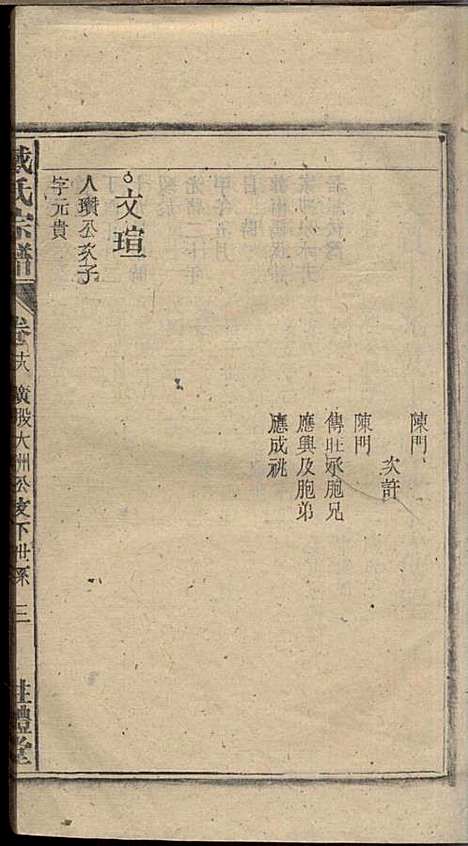 陳門
次許
陳門
傳壯承胞兄
應興及胞弟
應成祧
文瑄
人瓚公次子
字元貴
戴氏宗譜
卷十六 廣股大洲公支下世系 三
禮堂